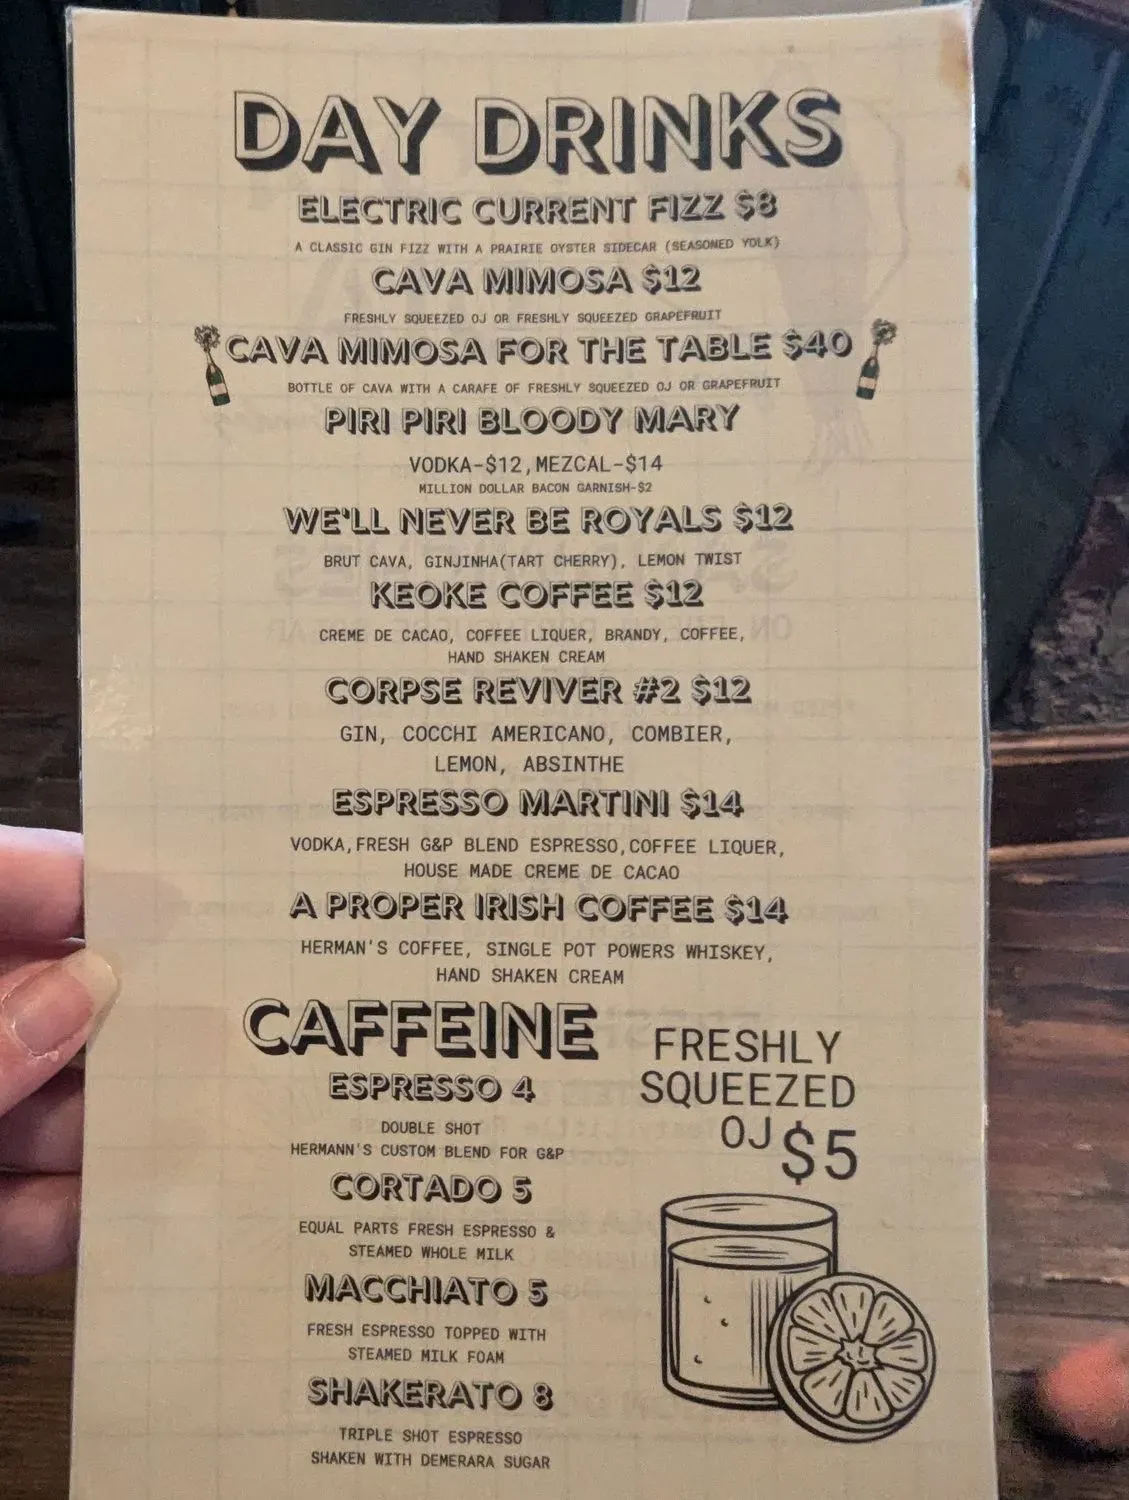 DAY DRINKS
ELECTRIC CURRENT FIZZ $8
A CLASSIC GIN FIZZ WITH A PRAIRIE OYSTER SIDECAR (SEASONED YOLK)
CAVA MIMOSA $12
FRESHLY SQUEEZED OJ OR FRESHLY SQUEEZED GRAPEFRUIT
CAVA MIMOSA FOR THE TABLE $40
BOTTLE OF CAVA WITH A CARAFE OF FRESHLY SQUEEZED OJ OR GRAPEFRUIT
PIRI PIRI BLOODY MARY
VODKA-$12,MEZCAL-$14
MILLION DOLLAR BACON GARNISH-$2
WE'LL NEVER BE ROYALS $12
BRUT CAVA, GINJINHA(TART CHERRY), LEMON TWIST
KEOKE COFFEE $12
CREME DE CACAO, COFFEE LIQUER, BRANDY, COFFEE,
HAND SHAKEN CREAM
CORPSE REVIVER #2 $12
GIN, COCCHI AMERICANO, COMBIER,
LEMON, ABSINTHE
ESPRESSO MARTINI $14
VODKA,FRESH G&P BLEND ESPRESSO,COFFEE LIQUER,
HOUSE MADE CREME DE CACAO
A PROPER IRISH COFFEE $14
HERMAN'S COFFEE, SINGLE POT POWERS WHISKEY,
HAND SHAKEN CREAM
CAFFEINE
ESPRESSO 4
DOUBLE SHOT
HERMANN'S CUSTOM BLEND FOR G&P
CORTADO 5
EQUAL PARTS FRESH ESPRESSO &
STEAMED WHOLE MILK
MACCHIATO 5
FRESH ESPRESSO TOPPED WITH
STEAMED MILK FOAM
SHAKERATO 8
TRIPLE SHOT ESPRESSO
SHAKEN WITH DEMERARA SUGAR
FRESHLY
SQUEEZED
OJ $5